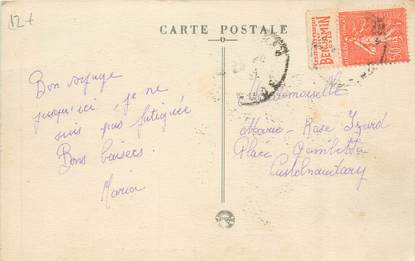 12+
CARTE POSTALE
BENJAMIN
Bon voyage
jusqu'ici je ne
suis pas fatiguée
Bons baisers.
Maria
Mademoiselle
Marie-Rose Izard
Place Gambetta
Castelnaudary